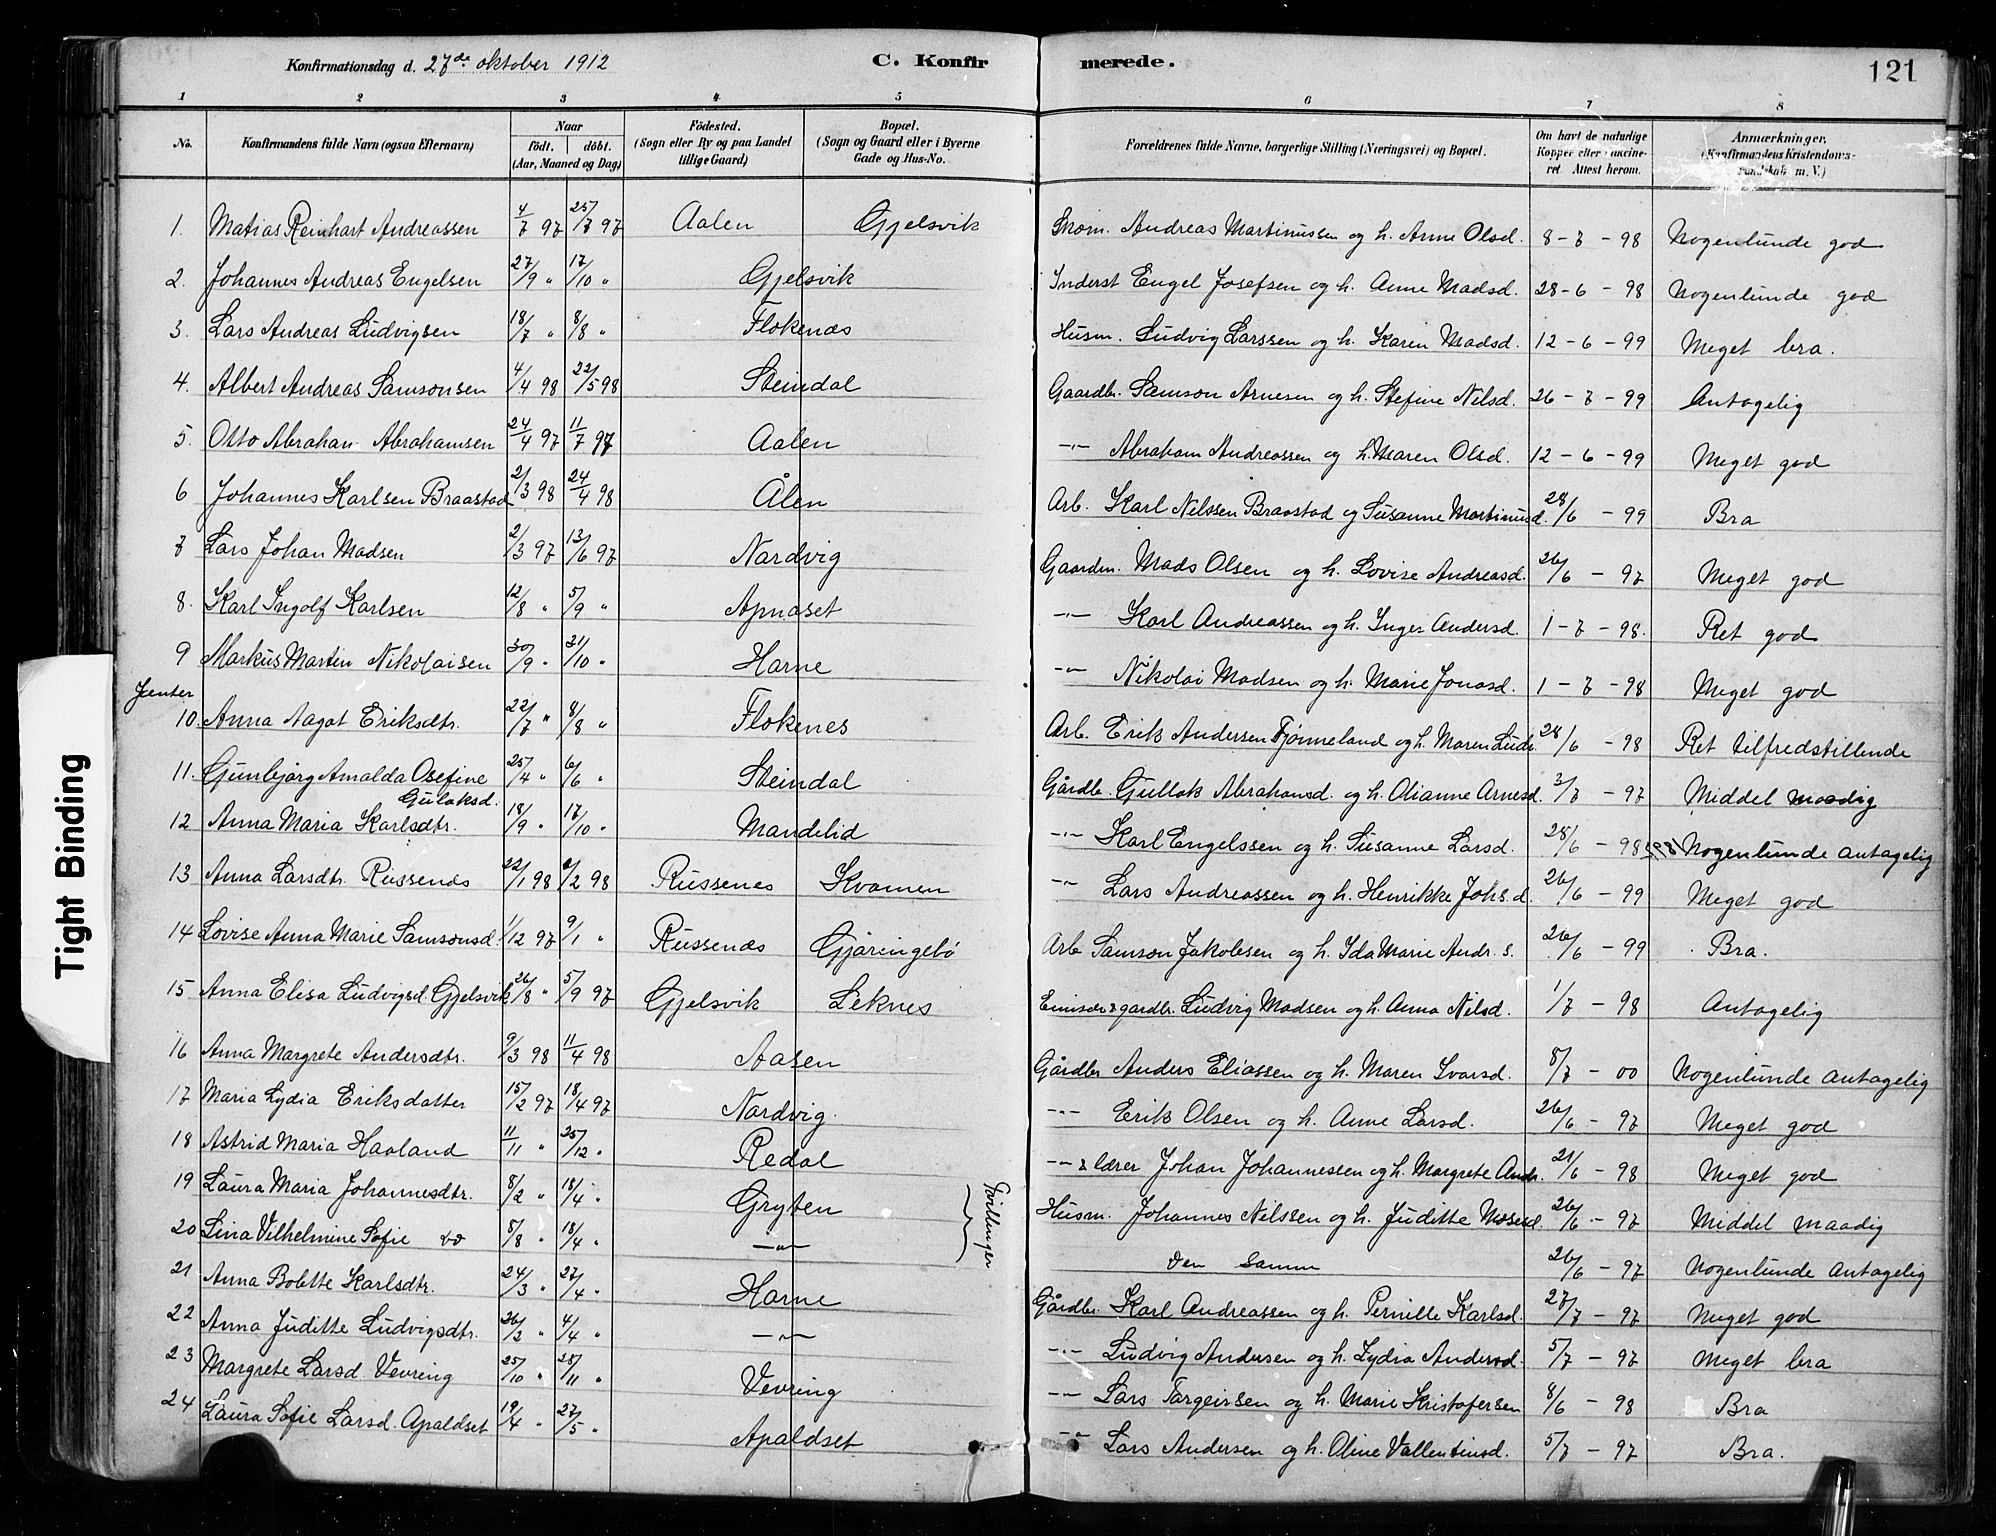 Konfirmationsdag d. 27de oktober 1912 C. Konfirmerede. 121
1 2 3 4 5 6 7 8
No. Konfirmandens fulde Navn (ogsaa Efternavn) Naar födt. döbt. (Aar, Maaned og Dag) Födested. (Sogn eller By og paa Landet tillige Gaard) Bopæl. (Sogn og Gaard eller i Byerne Gade og Hus-No. Forældrenes fulde Navne, borgerlige Stilling (Næringsvei) og Bopæl. Om havt de naturlige Kopper eller vaccineret Attest herom. Anmærkninger. (Konfirmandens Kristendomskundskab m. V.)
1. Matias Reinhart Andreassen 4/7 97 25/7 97 Aalen Gjelsvik Andreas Martinussen og h. Anne Olsd. 8-7-98 Nogenlunde god
2. Johannes Andreas Engelsen 27/9 " 17/10 " Gjelsvik Inderst Engel Josefsen og h. Anne Madsd. 28-6-98 Nogenlunde god
3. Lars Andreas Ludvigsen 18/7 " 8/8 " Flokenæs Husm. Ludvig Larssen og h. Karen Madsd. 12-6-99 Meget bra.
4. Albert Andreas Samsonsen 4/4 98 22/5 98 Steindal Gaardbr. Samson Arnesen og h. Stefine Nilsd. 26-7-99 Antagelig
5. Otto Abrahan Abrahamsen 24/4 97 11/7 97 Aalen -"- Abraham Andreassen og h. Maren Olsd. 12-6-99 Meget god
6 Johannes Karlsen Braastad 2/3 98 24/4 98 Ålen Arb. Karl Nilssen Braastad og Susanne Martinusd. 28/6-99 Bra
7 Lars Johan Madsen 2/3 97 13/6 97 Nardvig Gaardm. Mads Olsen og h. Lovise Andreasd. 26/6-97 Meget god
8. Karl Ingolf Karlsen 12/8 " 5/9 " Apnaset -"- Karl Andreassen og h. Inger Andersd. 1-7-98. Ret god
9 Markus Martin Nikolaisen 30/9 " 31/10 " Harne -"- Nikolai Madsen og h. Marie Jonasd. 1-7-98 Meget god
Jenter
10. Anna Aagot Eriksdtr. 22/7 " 8/8 " Flokenes Arb. Erik Andersen Tjønneland og h. Maren Ludv. 28/6-98 Ret tilfredstillende
11. Gunbjørg Amalda Osefine Gulaksd. 25/4 " 6/6 " Steindal Gårdbr. Gullak Abrahamsd. og h. Olianne Arnesd. 3/7-97 Middel maadig
12 Anna Maria Karlsdtr. 18/9 " 17/10 " Mandelid -"- Karl Engelssen og h. Susanne Larsd. 28/6-98 Nogenlunde antagelig
13 Anna Larsdtr. Russenes 22/1 98 2/2 98 Russenes Kvamen -"- Lars Andreassen og h. Henrikke Johs.d. 26/6-99 Meget god
14 Lovise Anna Marie Samsonsd 1/12 97 9/1 " Russenæs Gjøringebø Arb Samson Jakobsen og h. Ida Marie Andr. s. 26/6-99 Bra.
15 Anna Elisa Ludvigsd Gjelsvik 26/8 " 5/9 97 Gjelsvik Leknes & gardbr. Ludvig Madsen og h. Anna Nilsd. 1/7-98 Antagelig
16 Anna Margrete Andersdtr. 9/3 98 11/4 98 Aasen Gårdbr Anders Eliassen og h. Maren Ivarsd. 8/7-00 Nogenlunde antagelig
17 Maria Lydia Eriksdatter 15/2 97 18/4 97 Nardvig. -"- Erik Olsen og h. Anne Larsd. 26/6-97 Meget god
18 Astrid Maria Haaland 11/11 " 25/12 " Redal -"- & lærer Johan Johannessen og h. Margrete Andr. 21/6-98 Meget god
19 Laura Maria Johannesdtr. 8/2 " 18/4 " Gryten Tvillinger Husm. Johannes Nilssen og h. Juditte Mosesd. 26/6-97 Middel maadig
20 Lina Vilhelmine Sofie do 8/8 " 18/4 " -"- Den samm 26/6-97 Nogenlunde antagelig
21 Anna Bolette Karlsdtr. 24/3 " 27/4 " Harne Gårdbr. Karl Andreassen og h. Pernille Karlsd. 27/7-97 Meget god
22 Anna Juditte Ludvigsdtr. 26/2 " 4/4 " -"- -"- Ludvig Andersen og h. Lydia Andersd. 5/7-97 Meget bra
23 Margrete Larsd Vevring 25/10 " 28/11 " Vevring -"- Lars Torgeirsen og h. Marie Kristofersen 8/6-98 Bra
24 Laura Sofie Larsd. Apaldset 19/4 " 27/5 " Apaldset -"- Lars Andersen og h. Oline Vallentinsd. 5/7-97 Bra.
Tight Binding